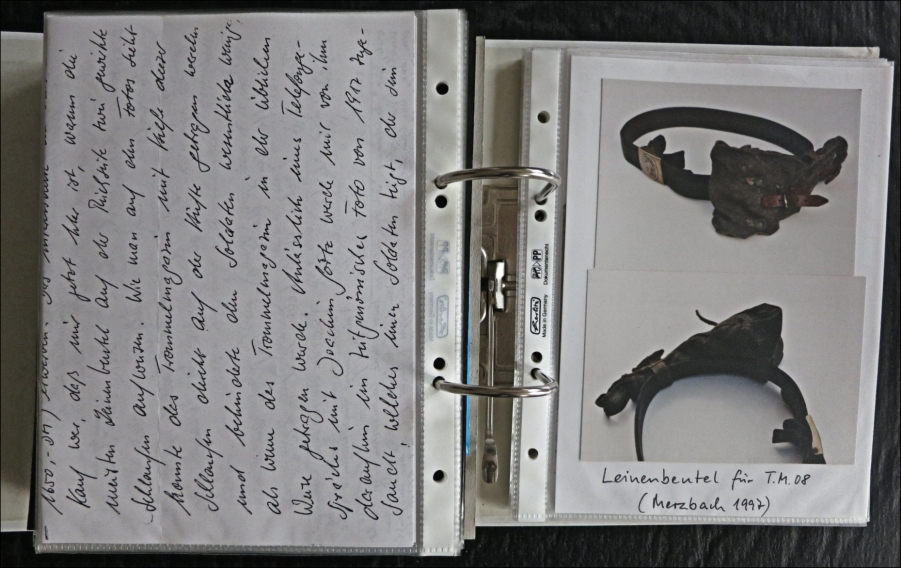 1650,- DM) erworben. Das
Kauf war, daß mir jetzt klar ist, warum die
meisten Leinenbeutel auf der Rückseite zwei genähte
Schlaufen aufweisen. Wie man auf den Fotos sieht
konnte das Trommelmagazin mit Hilfe dieser
Schlaufen dicht auf der Hüfte getragen werden
und behinderte den Soldaten wesentlich wenige
als wenn das Trommelmagazin in der üblichen
Weise getragen wurde. Anlässlich eines Telefonge-
sprächs mit Joachim wurde mir von ihm
daraufhin ein zeitgenössisches Foto von 1917 zuge-
sandt, welches einen Soldaten zeigt, der ein
herlitz
Made in Germany
PP
Dokumentenecht
Leinenbeutel für T.M. 08
(Merzbach 1997)